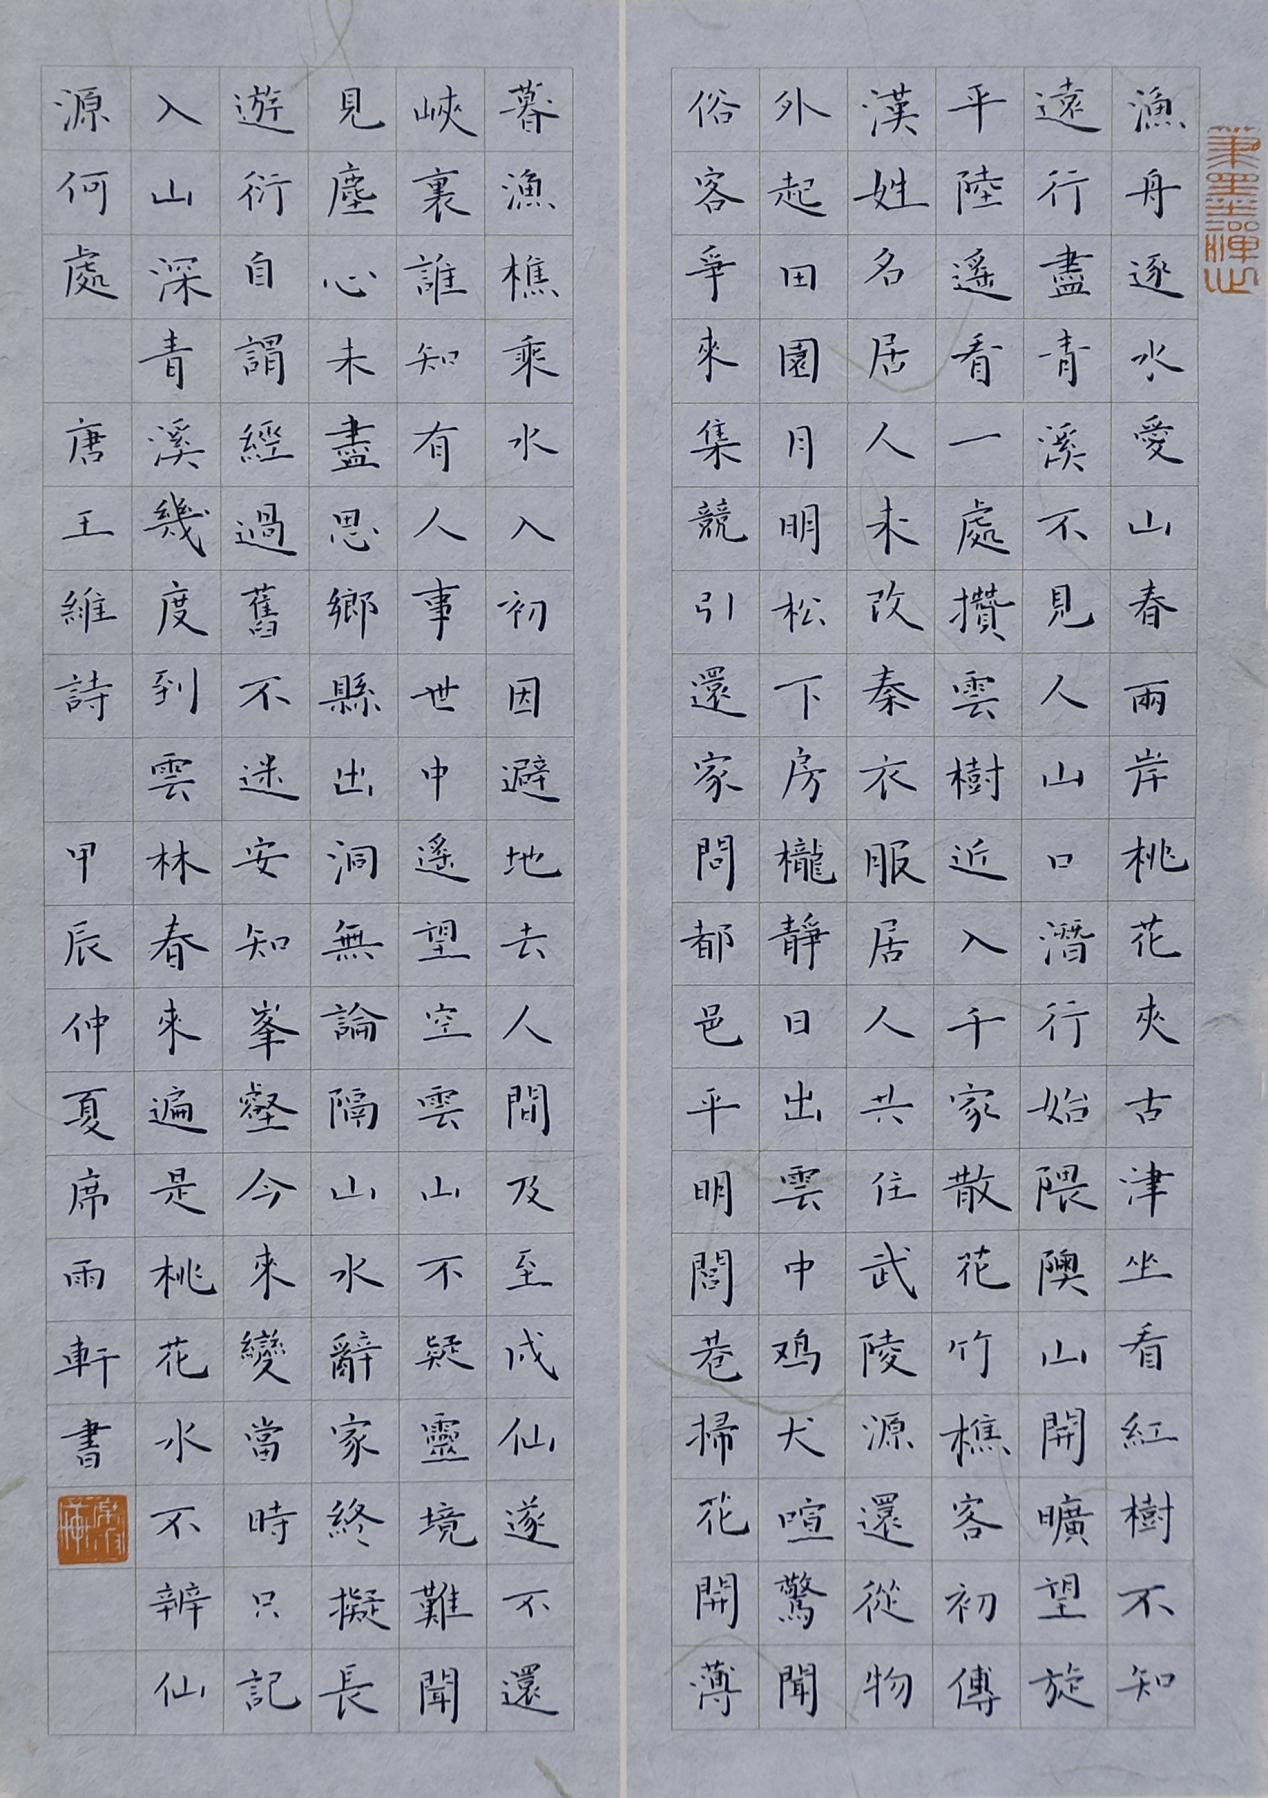 漁舟逐水愛山春兩岸桃花夾古津坐看紅樹不知
遠行盡青溪不見人山口潛行始隈隩山開曠望旋
平陸遥看一處攢雲樹近入千家散花竹樵客初傳
漢姓名居人未改秦衣服居人共住武陵源還從物
外起田園月明松下房櫳靜日出雲中鸡犬喧驚聞
俗客爭來集競引還家問都邑平明閭巷掃花開薄
暮漁樵乘水入初因避地去人間及至成仙遂不還
峽裏誰知有人事世中遥望空雲山不疑靈境難聞
見塵心未盡思鄉縣出洞無論隔山水辭家終擬長
遊衍自謂經過舊不迷安知峯壑今來變當時只記
入山深青溪幾度到雲林春來遍是桃花水不辨仙
源何處 唐王維詩 甲辰仲夏席雨軒書
筆墨禪心